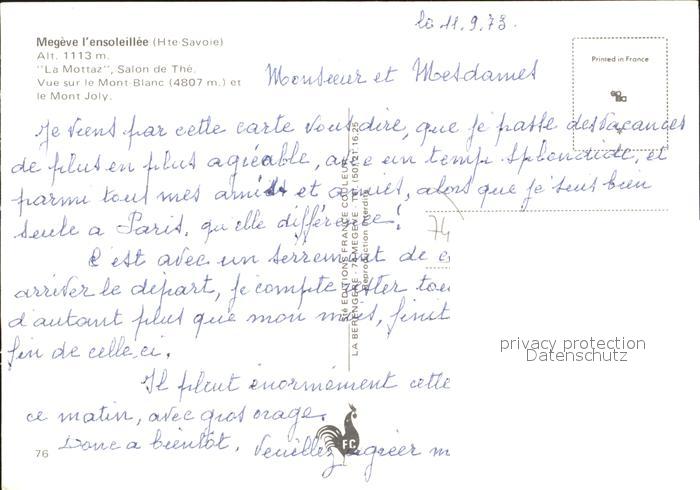 le 11.9.73.
Megève l'ensoleillée (Hte-Savoie)
Alt. 1113 m.
"La Mottaz", Salon de Thé.
Vue sur le Mont-Blanc (4807 m.) et
le Mont Joly.
Printed in France
Monsieur et Mesdames
Je viens par cette carte vous dire, que je passe des vacances
de plus en plus agréable, avec un temp splendide, et
parmi tous mes amis et amies, alors que je suis bien
seule a Paris, qu'elle différence!
74
C'est avec un serrement de
arriver le départ, je compte rester
d'autant plus que mon mois, finit
fin de celle.ci.
Il pleut énormément cette
ce matin, avec gros orage.
Donc a bientôt, Veuillez agréer
76
FC
Sté EDITIONS FRANCE COULEUR
LA BERENGERE - 74-MEGEVE - Tél. (50) 21.16.25
Reproduction interdite
privacy protection
Datenschutz